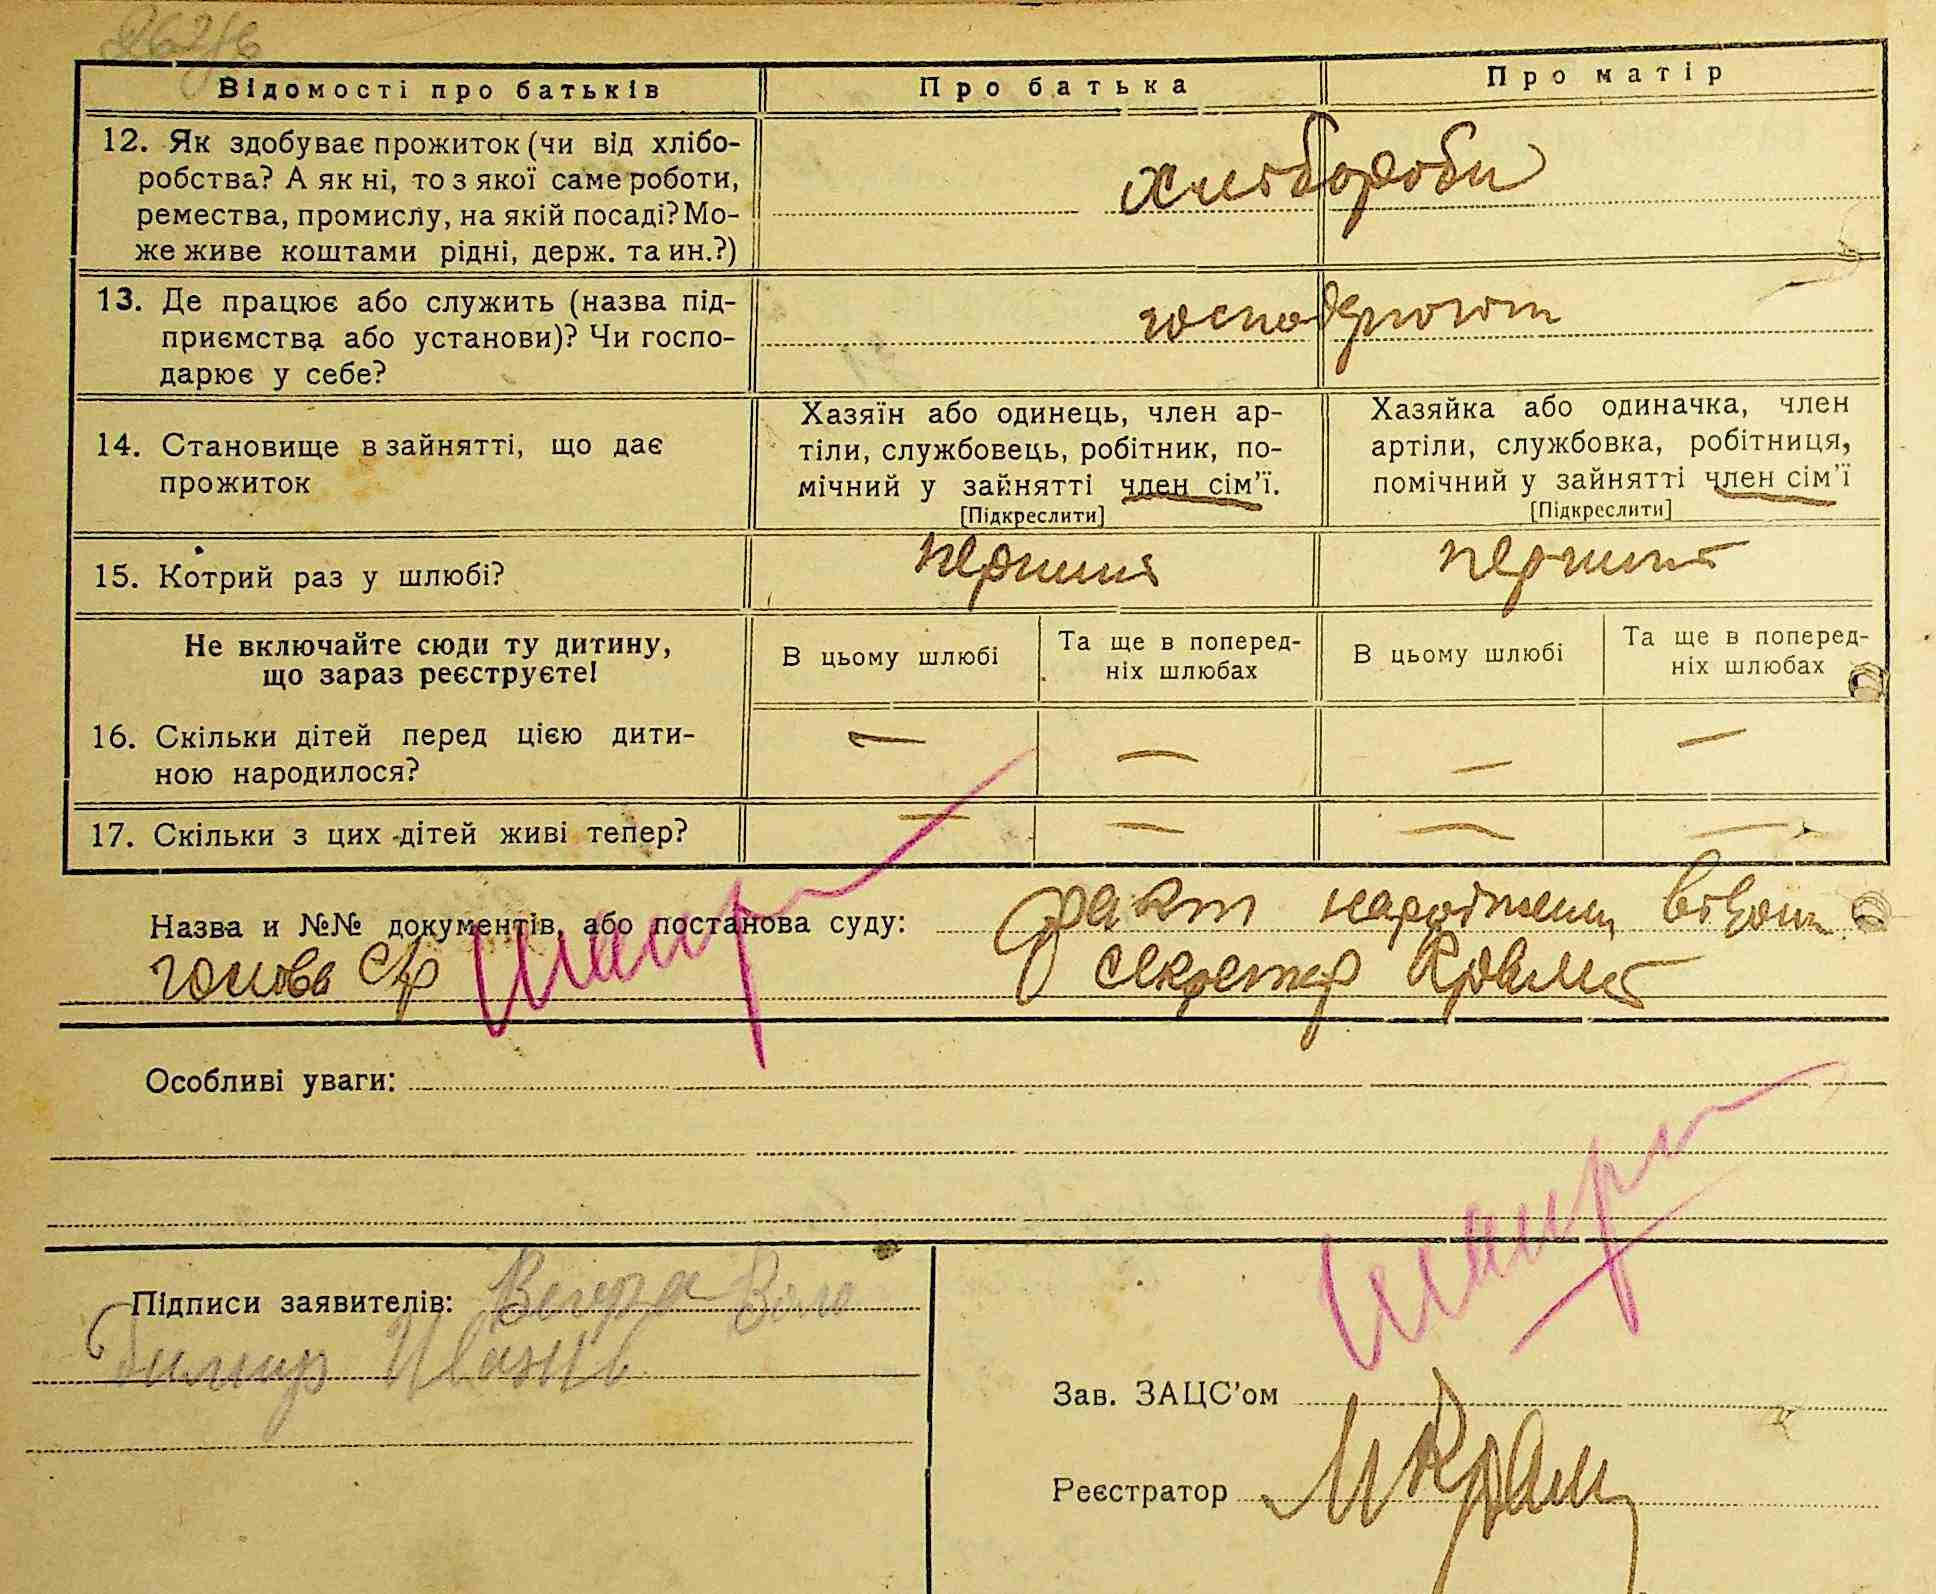 Відомості про батьків Про батька Про матір
12. Як здобуває прожиток (чи від хлібо-
робства? А як ні, то з якої саме роботи,
ремества, промислу, на якій посаді? Мо-
же живе коштами рідні, держ. та ин.?)
хлібороби
13. Де працює або служить (назва під-
приємства або установи)? Чи госпо-
дарює у себе?
господарюють
14. Становище в зайнятті, що дає
прожиток
Хазяїн або одинець, член ар-
тіли, службовець, робітник, по-
мічний у зайнятті член сім'ї.
[Підкреслити]
Хазяйка або одиначка, член
артіли, службовка, робітниця,
помічний у зайнятті член сім'ї
[Підкреслити]
15. Котрий раз у шлюбі? перший перший
Не включайте сюди ту дитину,
що зараз реєструєте!
В цьому шлюбі
Та ще в поперед-
ніх шлюбах
В цьому шлюбі
Та ще в поперед-
ніх шлюбах
16. Скільки дітей перед цією дити-
ною народилося?
— — — —
17. Скільки з цих дітей живі тепер?
— — — —
Назва и №№ документів, або постанова суду: факт народження
голова с/р секретар
Особливі уваги:
Підписи заявителів: Воло
димир
Зав. ЗАЦС'ом
Реєстратор